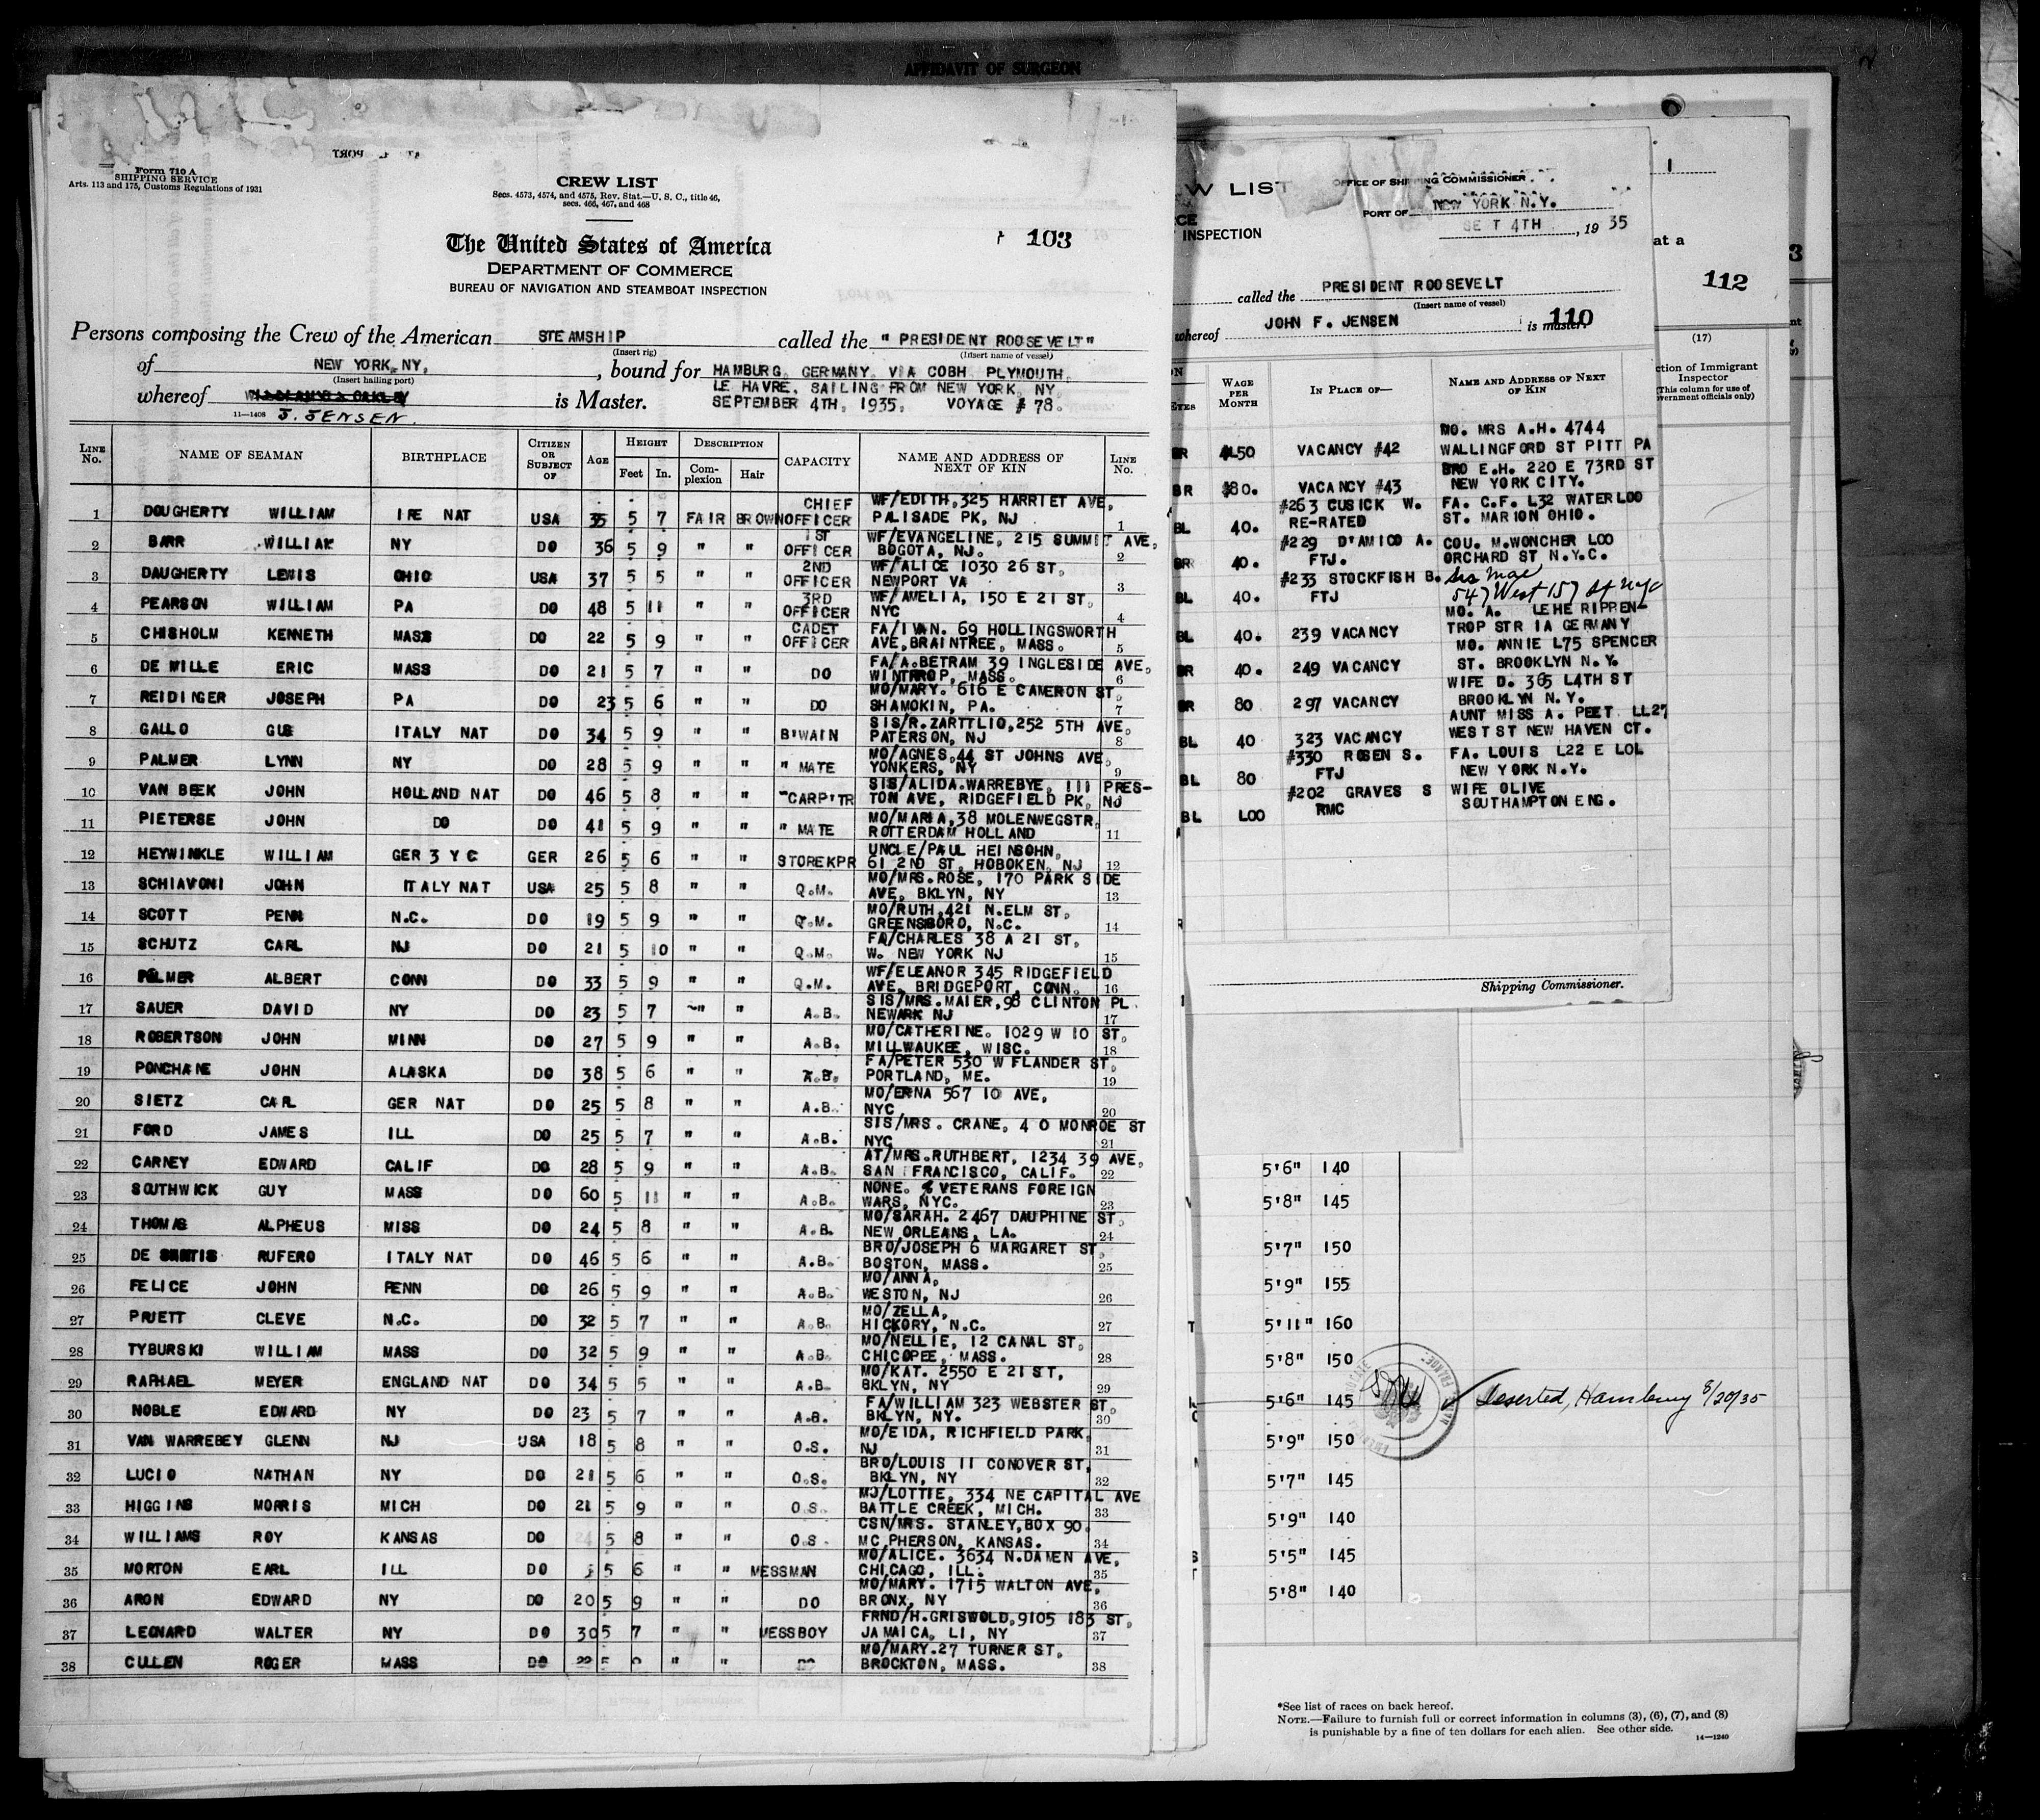 AFFIDAVIT OF SURGEON
Form 710 A
SHIPPING SERVICE
Arts. 113 and 175, Customs Regulations of 1931
CREW LIST
Secs. 4573, 4574, and 4575, Rev. Stat.—U. S. C., title 46,
secs. 466, 467, and 468
The United States of America
103
DEPARTMENT OF COMMERCE
BUREAU OF NAVIGATION AND STEAMBOAT INSPECTION
Persons composing the Crew of the American STEAMSHIP called the "PRESIDENT ROOSEVELT"
(Insert rig) (Insert name of vessel)
of NEW YORK, NY, , bound for HAMBURG, GERMANY, VIA COBH PLYMOUTH,
(Insert hailing port)
LE HAVRE, SAILING FROM NEW YORK, NY,
whereof is Master. SEPTEMBER 4TH, 1935, VOYAGE # 78.
11—1408 J. JENSEN.
LINE No. NAME OF SEAMAN BIRTHPLACE CITIZEN OR SUBJECT OF AGE HEIGHT Feet In. DESCRIPTION Complexion Hair CAPACITY NAME AND ADDRESS OF NEXT OF KIN LINE No.
1 DOUGHERTY WILLIAM IRE NAT USA 35 5 7 FAIR BROWN CHIEF OFFICER WF/EDITH, 325 HARRIET AVE, PALISADE PK, NJ 1
2 BARR WILLIAM NY DO 36 5 9 " " 1ST OFFICER WF/EVANGELINE, 215 SUMMIT AVE, BOGOTA, NJ. 2
3 DAUGHERTY LEWIS OHIO USA 37 5 5 " " 2ND OFFICER WF/ALICE 1030 26 ST, NEWPORT VA 3
4 PEARSON WILLIAM PA DO 48 5 11 " " 3RD OFFICER WF/AMELIA, 150 E 21 ST, NYC 4
5 CHISHOLM KENNETH MASS DO 22 5 9 " " CADET OFFICER FA/IVAN. 69 HOLLINGSWORTH AVE, BRAINTREE, MASS. 5
6 DE WILLE ERIC MASS DO 21 5 7 " " DO FA/A. BETRAM 39 INGLESIDE AVE, WINTHROP, MASS. 6
7 REIDINGER JOSEPH PA DO 23 5 6 " " DO MO/MARY. 616 E CAMERON ST, SHAMOKIN, PA. 7
8 GALLO GUS ITALY NAT DO 34 5 9 " " B'WAIN SIS/R. ZARTTLIO, 252 5TH AVE, PATERSON, NJ 8
9 PALMER LYNN NY DO 28 5 9 " " " MATE MO/AGNES, 44 ST JOHNS AVE, YONKERS, NY 9
10 VAN BEEK JOHN HOLLAND NAT DO 46 5 8 " " CARP'TR SIS/ALIDA. WARREBYE, 111 PRESTON AVE, RIDGEFIELD PK, NJ
11 PIETERSE JOHN DO DO 41 5 9 " " " MATE MO/MARIA, 38 MOLENWEGSTR, ROTTERDAM HOLLAND 11
12 HEYWINKLE WILLIAM GER 3 Y C GER 26 5 6 " " STOREKPR UNCLE/PAUL HEINSOHN, 61 2ND ST, HOBOKEN, NJ 12
13 SCHIAVONI JOHN ITALY NAT USA 25 5 8 " " Q.M. MO/MRS. ROSE, 170 PARK SIDE AVE, BKLYN, NY 13
14 SCOTT PENN N.C. DO 19 5 9 " " Q.M. MO/RUTH, 421 N.ELM ST, GREENSBORO, N.C. 14
15 SCHUTZ CARL NJ DO 21 5 10 " " Q.M. FA/CHARLES 38 A 21 ST, W. NEW YORK NJ 15
16 PALMER ALBERT CONN DO 33 5 9 " " Q.M. WF/ELEANOR 345 RIDGEFIELD AVE, BRIDGEPORT, CONN. 16
17 SAUER DAVID NY DO 23 5 7 " " A.B. SIS/MRS. MAIER, 98 CLINTON PL. NEWARK NJ 17
18 ROBERTSON JOHN MINN DO 27 5 9 " " A.B. MO/CATHERINE. 1029 W 10 ST, MILLWAUKEE, WISC. 18
19 PONCHANE JOHN ALASKA DO 38 5 6 " " A.B. FA/PETER 530 W FLANDER ST, PORTLAND, ME. 19
20 SIETZ CARL GER NAT DO 25 5 8 " " A.B. MO/ERNA 567 10 AVE, NYC 20
21 FORD JAMES ILL DO 25 5 7 " " A.B. SIS/MRS. CRANE, 4 0 MONROE ST NYC 21
22 CARNEY EDWARD CALIF DO 28 5 9 " " A.B. AT/MRS. RUTHBERT, 1234 39 AVE, SAN FRANCISCO, CALIF. 22
23 SOUTHWICK GUY MASS DO 60 5 11 " " A.B. NONE. % VETERANS FOREIGN WARS, NYC. 23
24 THOMAS ALPHEUS MISS DO 24 5 8 " " A.B. MO/SARAH. 2467 DAUPHINE ST, NEW ORLEANS, LA. 24
25 DE RUFERO ITALY NAT DO 46 5 6 " " A.B. BRO/JOSEPH 6 MARGARET ST, BOSTON, MASS. 25
26 FELICE JOHN PENN DO 26 5 9 " " A.B. MO/ANNA, WESTON, NJ 26
27 PRUETT CLEVE N.C. DO 32 5 7 " " A.B. MO/ZELLA, HICKORY, N.C. 27
28 TYBURSKI WILLIAM MASS DO 32 5 9 " " A.B. MO/NELLIE, 12 CANAL ST, CHICOPEE, MASS. 28
29 RAPHAEL MEYER ENGLAND NAT DO 34 5 5 " " A.B. MO/KAT. 2550 E 21 ST, BKLYN, NY 29
30 NOBLE EDWARD NY DO 23 5 7 " " A.B. FA/WILLIAM 323 WEBSTER ST, BKLYN, NY. 30
31 VAN WARREBEY GLENN NJ USA 18 5 8 " " O.S. MO/EIDA, RICHFIELD PARK, NJ 31
32 LUCIO NATHAN NY DO 21 5 6 " " O.S. BRO/LOUIS 11 CONOVER ST, BKLYN, NY 32
33 HIGGINS MORRIS MICH DO 21 5 9 " " O.S. MO/LOTTIE, 334 NE CAPITAL AVE BATTLE CREEK, MICH. 33
34 WILLIAMS ROY KANSAS DO 24 5 8 " " O.S. CSN/MRS. STANLEY, BOX 90. MC PHERSON, KANSAS. 34
35 MORTON EARL ILL DO 5 6 " " MESSMAN MO/ALICE. 3634 N.DAMEN AVE, CHICAGO, ILL. 35
36 ARON EDWARD NY DO 20 5 9 " " DO MO/MARY. 1715 WALTON AVE, BRONX, NY 36
37 LEONARD WALTER NY DO 30 5 7 " " MESSBOY FRND/H. GRISWOLD, 9105 183 ST, JAMAICA, LI, NY 37
38 CULLEN ROGER MASS DO 22 5 " " DO MO/MARY. 27 TURNER ST, BROCKTON, MASS. 38
W LIST OFFICE OF SHIPPING COMMISSIONER
PORT OF NEW YORK N.Y.
CE
INSPECTION SE T 4TH , 19 35
called the PRESIDENT ROOSEVELT
(Insert name of vessel)
whereof JOHN F. JENSEN is master.
110
EYES WAGE PER MONTH IN PLACE OF— NAME AND ADDRESS OF NEXT OF KIN
BR 150 VACANCY #42 MO. MRS A.H. 4744 WALLINGFORD ST PITT PA
BR 80. VACANCY #43 BRO E.H. 220 E 73RD ST NEW YORK CITY.
BL 40. #263 CUSICK W. RE-RATED FA. C.F. L32 WATERLOO ST. MARION OHIO.
BR 40. #229 D'AMICO A. FTJ. COU. M.WONCHER LOO ORCHARD ST N.Y.C.
BL 40. #233 STOCKFISH B. FTJ Sis Mae 547 West 157 St nyc
BL 40. 239 VACANCY MO. A. LEHE RIPPEN- TROP STR 1A GERMANY
BR 40. 249 VACANCY MO. ANNIE L75 SPENCER ST. BROOKLYN N.Y.
BR 80 297 VACANCY WIFE D. 365 L4TH ST BROOKLYN N.Y.
BL 40 323 VACANCY AUNT MISS A. PEET LL27 WEST ST NEW HAVEN CT.
BL 80 #330 ROSEN S. FTJ FA. LOUIS L22 E LOL NEW YORK N.Y.
BL LOO #202 GRAVES S RMC WIFE OLIVE SOUTHAMPTON ENG.
Shipping Commissioner.
1
at a
112
3
(17)
ction of Immigrant
Inspector
(This column for use of
vernment officials only)
5'6" 140
5'8" 145
5'7" 150
5'9" 155
5'11" 160
5'8" 150
5'6" 145 Deserted, Hamburg 8/20/35
5'9" 150
5'7" 145
5'9" 140
5'5" 145
5'8" 140
*See list of races on back hereof.
NOTE.—Failure to furnish full or correct information in columns (3), (6), (7), and (8)
is punishable by a fine of ten dollars for each alien. See other side.
14—1240